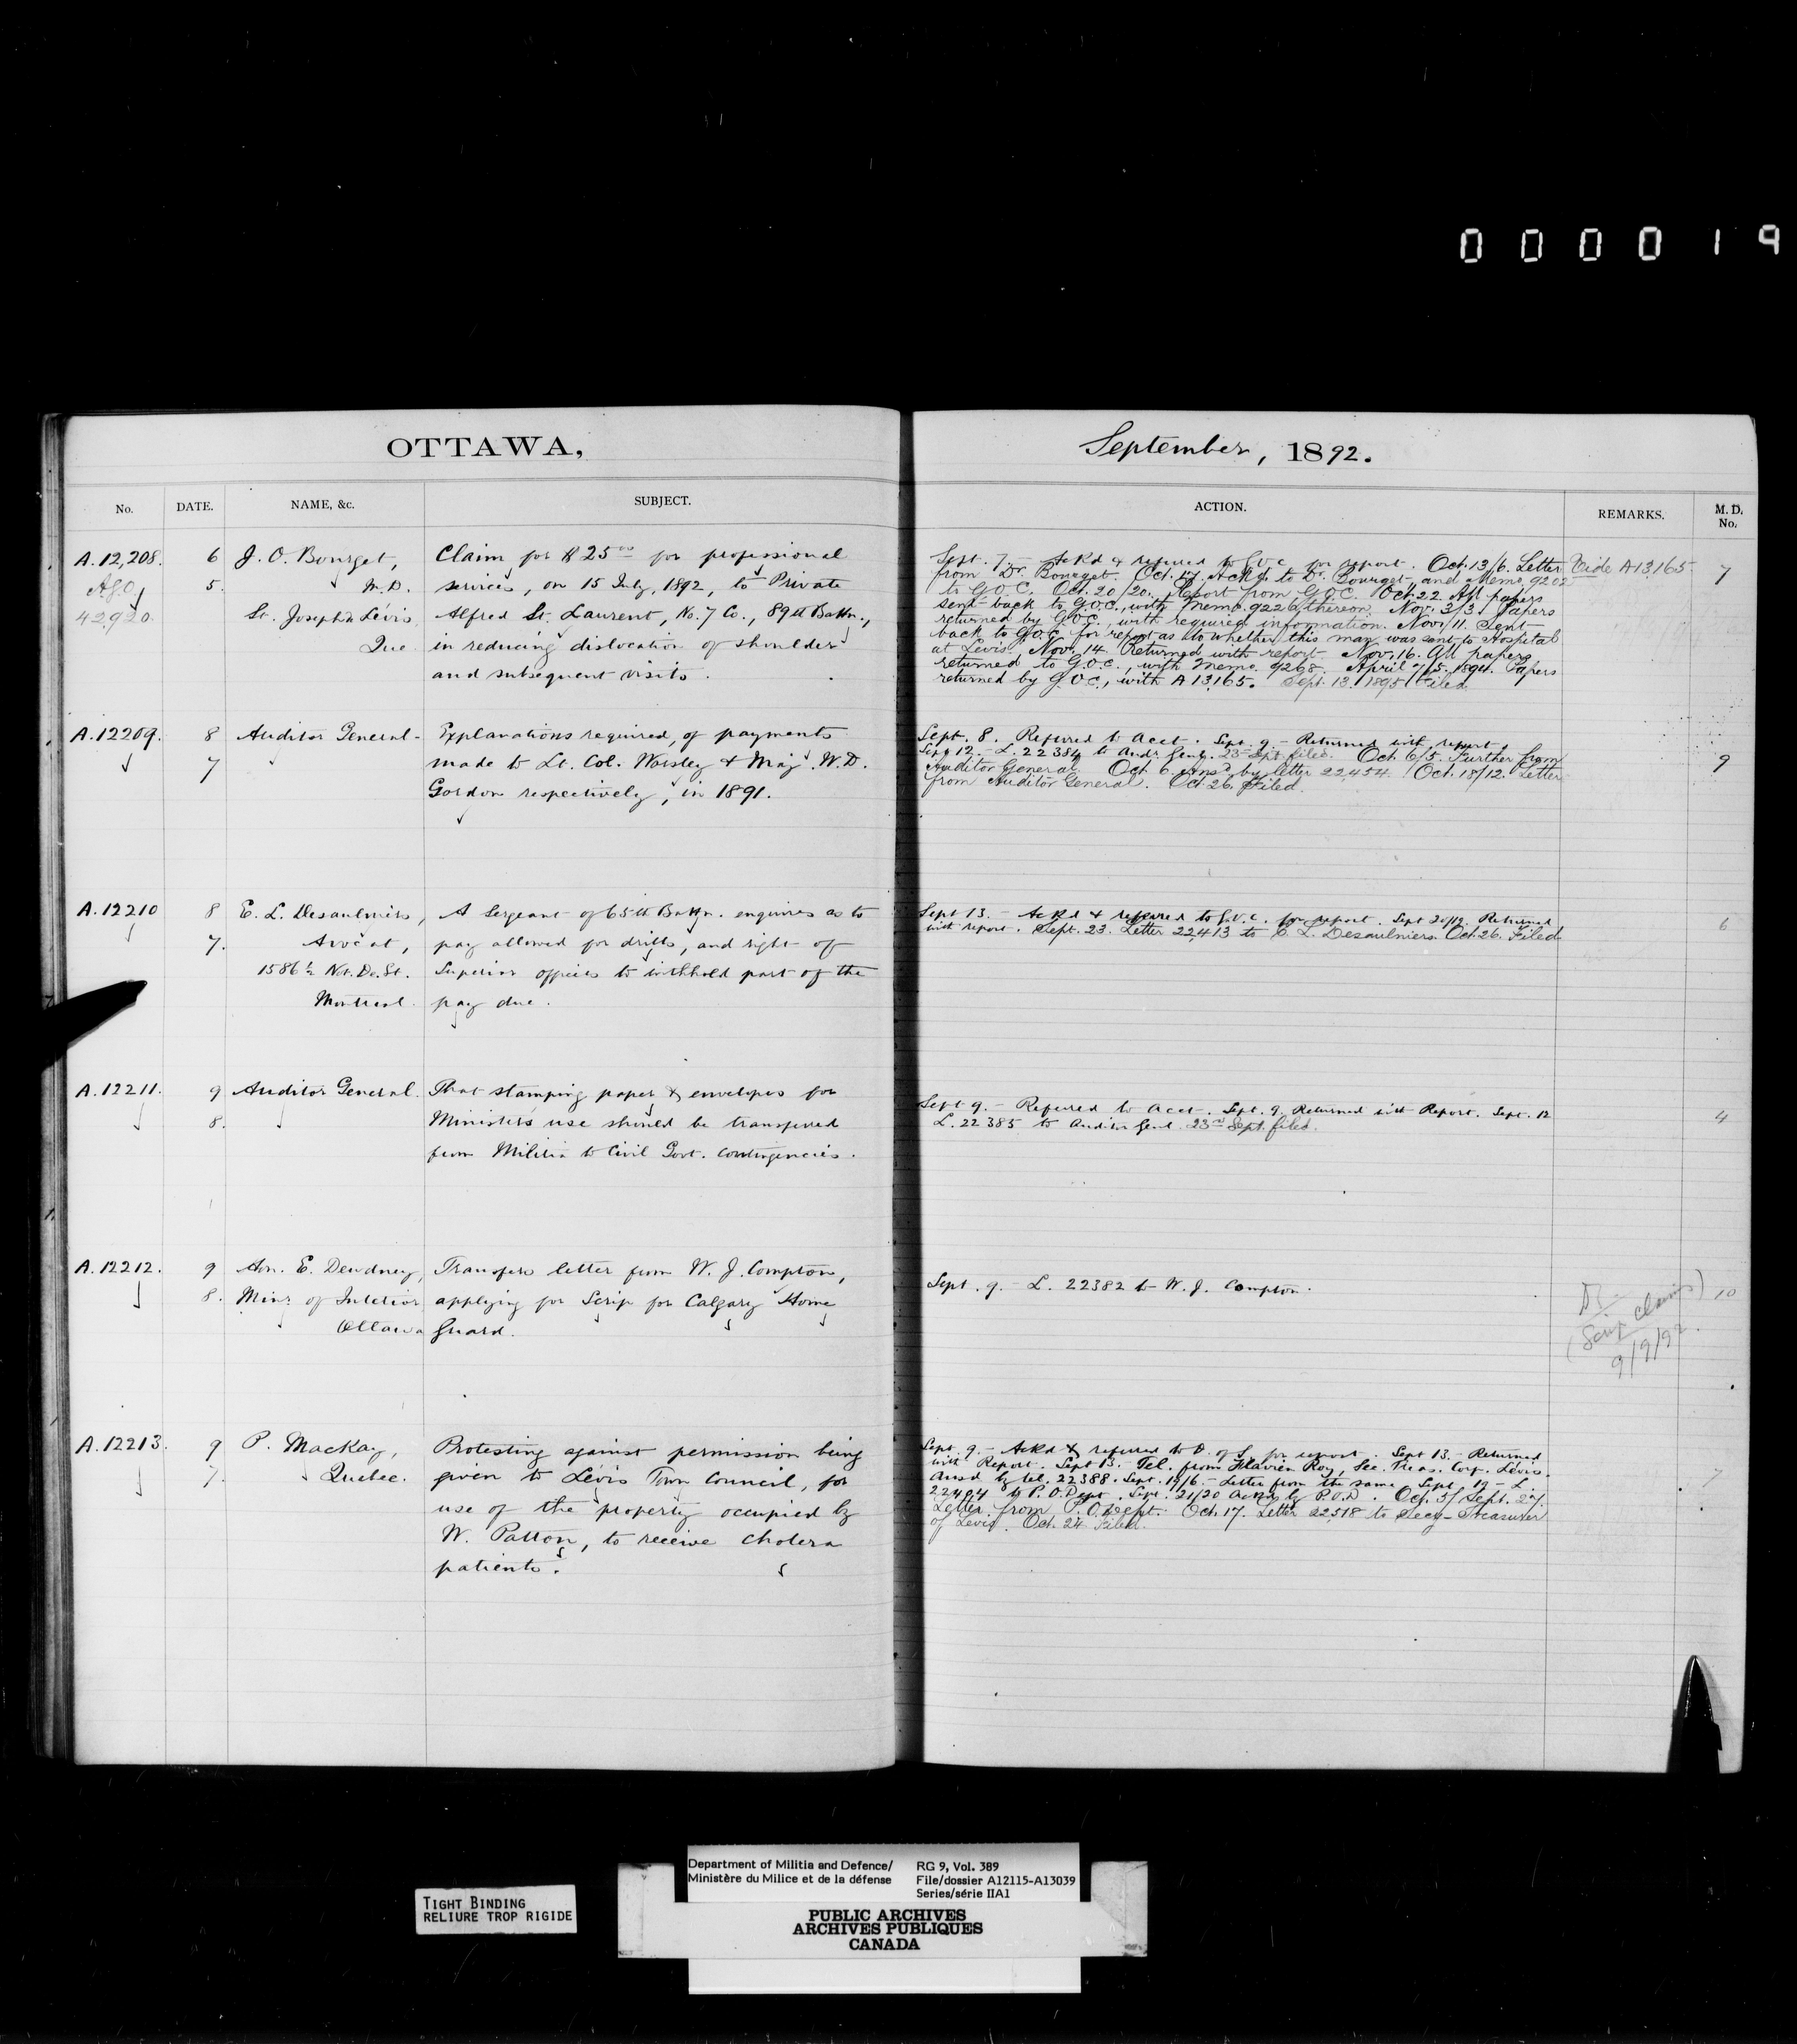 000019
OTTAWA,
September, 1892.
No.
DATE.
NAME, &c.
SUBJECT.
ACTION.
REMARKS.
M. D. No.
A. 12,208.
6
5.
AGO
42920.
J. O. Bourget,
M.D.
St. Joseph de Lévis,
Que
Claim for $25 00 for professional
services, on 15 July, 1892, to Private
Alfred St. Laurent, No. 7 Co., 89th Battn.,
in reducing dislocation of shoulder
and subsequent visits.
Sept. 7. — Ackd & referred to G.O.C. for report. Oct. 13/6. Letter
from Dr. Bourget. Oct. 17. Ackd. to Dr. Bourget, and Memo. 9202
to G.O.C. Oct. 20/20. Report from G.O.C. Oct. 22 All papers
sent back to G.O.C., with Memo. 9226 thereon. Nov. 3/3. Papers
returned by G.O.C., with required information. Nov. 11. Sent
back to G.O.C. for report as to whether this man was sent to Hospital
at Levis. Nov. 14. Returned with report. Nov. 16. All papers
returned to G.O.C., with Memo. 9268. April 7/5. 1894. Papers
returned by G.O.C., with A 13,165. Sept. 13. 1895 Filed
Vide A13,165
7
A. 12209.
8
7
Auditor General-
Explanations required, of payments
made to Lt. Col. Worsley & Maj. W. D.
Gordon respectively, in 1891.
Sept. 8. Referred to Acct. Sept. 9 — Returned with report.
Sept 12. — L. 22384 to Audr. Genl. 23rd Sept filed. Oct. 6/5. Further from
Auditor General. Oct. 6. Ansd by letter 22,454. Oct. 18/12. Letter
from Auditor General. Oct. 26. Filed.
9
A. 12210
8
7.
E. L. Desaulniers,
Avocat,
1586½ Not. De. St.
Montreal.
A Sergeant of 65th Battn. enquires as to
pay allowed for drills, and right of
Superior officers to withhold part of the
pay due.
Sept 13. — Ackd & referred to G.O.C. for report. Sept 20/19. Returned
with report. Sept. 23. Letter 22,413 to E. L. Desaulniers. Oct. 26. Filed
6
A. 12211.
9
8.
Auditor General.
That stamping paper & envelopes for
Ministers use should be transferred
from Militia to Civil Govt. contingencies.
Sept 9. — Referred to Acct. Sept. 9. Returned with Report. Sept. 12
L. 22385 to Auditor Genl. 23rd Sept. filed.
4
A. 12212.
9
8.
Hon. E. Dewdney,
Minr. of Interior
Ottawa
Transfers letter from W. J. Compton,
applying for Scrip for Calgary Home
Guard.
Sept. 9. — L. 22382 to W. J. Compton.
(Scrip claims)
9/9/92.
10
A. 12213.
9
7.
P. MacKay,
Quebec.
Protesting against permission being
given to Lévis Town Council, for
use of the property occupied by
W. Patton, to receive cholera
patients.
Sept. 9. — Ackd & referred to D. of S. for report. Sept 13. — Returned
with Report. Sept 13. Tel. from Flavien Roy, Sec. Treas. Corp. Lévis.
Ansd by tel. 22388. Sept. 19/16 — Letter from the same Sept. 19 — L.
22404 to P. O. Dept. Sept. 21/20 Ackd by P.O.D. Oct. 3/ Sept. 27.
Letter from P. O. Dept. Oct. 17. Letter 22,518 to Secy-Treasurer
of Levis. Oct. 24 Filed.
7
TIGHT BINDING
RELIURE TROP RIGIDE
Department of Militia and Defence/
Ministère du Milice et de la défense
RG 9, Vol. 389
File/dossier A12115-A13039
Series/série IIA1
PUBLIC ARCHIVES
ARCHIVES PUBLIQUES
CANADA